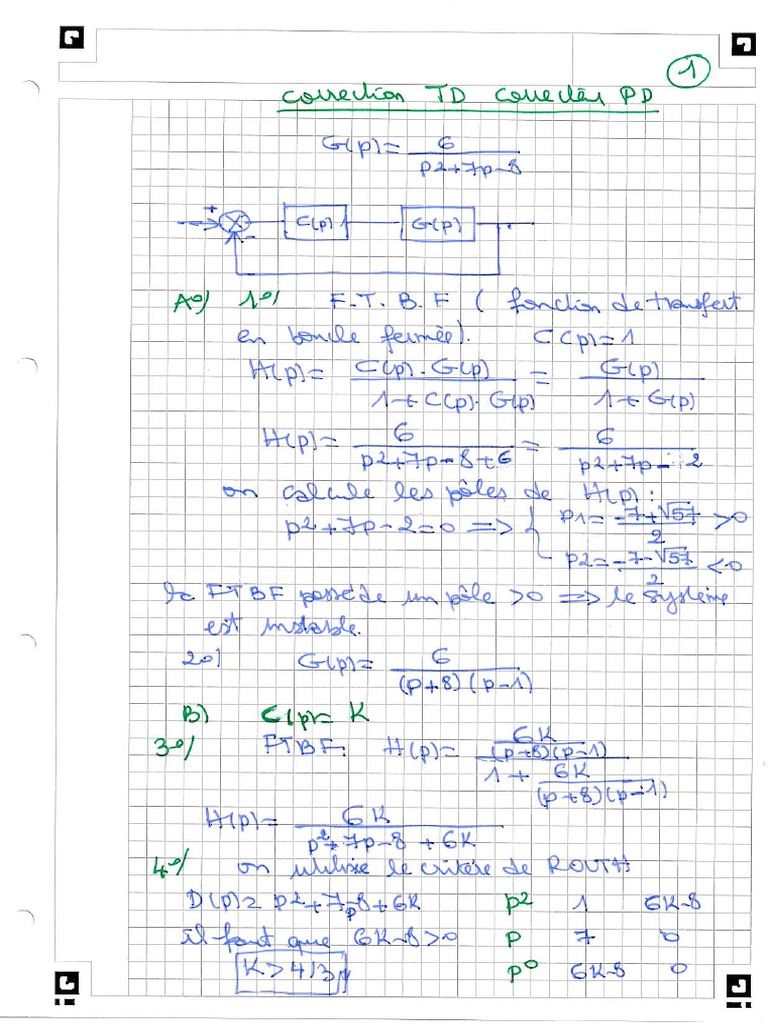 1
Correction TD Correcteur PD
G(p) = 6 / (p2+7p-8)
+ - C(p) G(p)
A°/ 1°/ F.T.B.F ( fonction de transfert
en boucle fermée). C(p)=1
H(p) = C(p).G(p) / (1+C(p).G(p)) = G(p) / (1+G(p))
H(p) = 6 / (p2+7p-8+6) = 6 / (p2+7p-2)
on calcule les pôles de H(p) :
p2+7p-2=0 => { p1 = (-7+√57)/2 >0
p2 = (-7-√57)/2 <0
la FTBF possède un pôle >0 => le système
est instable.
2°/ G(p) = 6 / ((p+8)(p-1))
B) C(p) = K
3°/ FTBF: H(p) = (6K / ((p+8)(p-1))) / (1 + 6K / ((p+8)(p-1)))
H(p) = 6K / (p²+7p-8+6K)
4°/ on utilise le critère de ROUTH
D(p) = p2+7p-8+6K p2 1 6K-8
il faut que 6K-8>0 p 7 0
K > 4/3 p0 6K-8 0